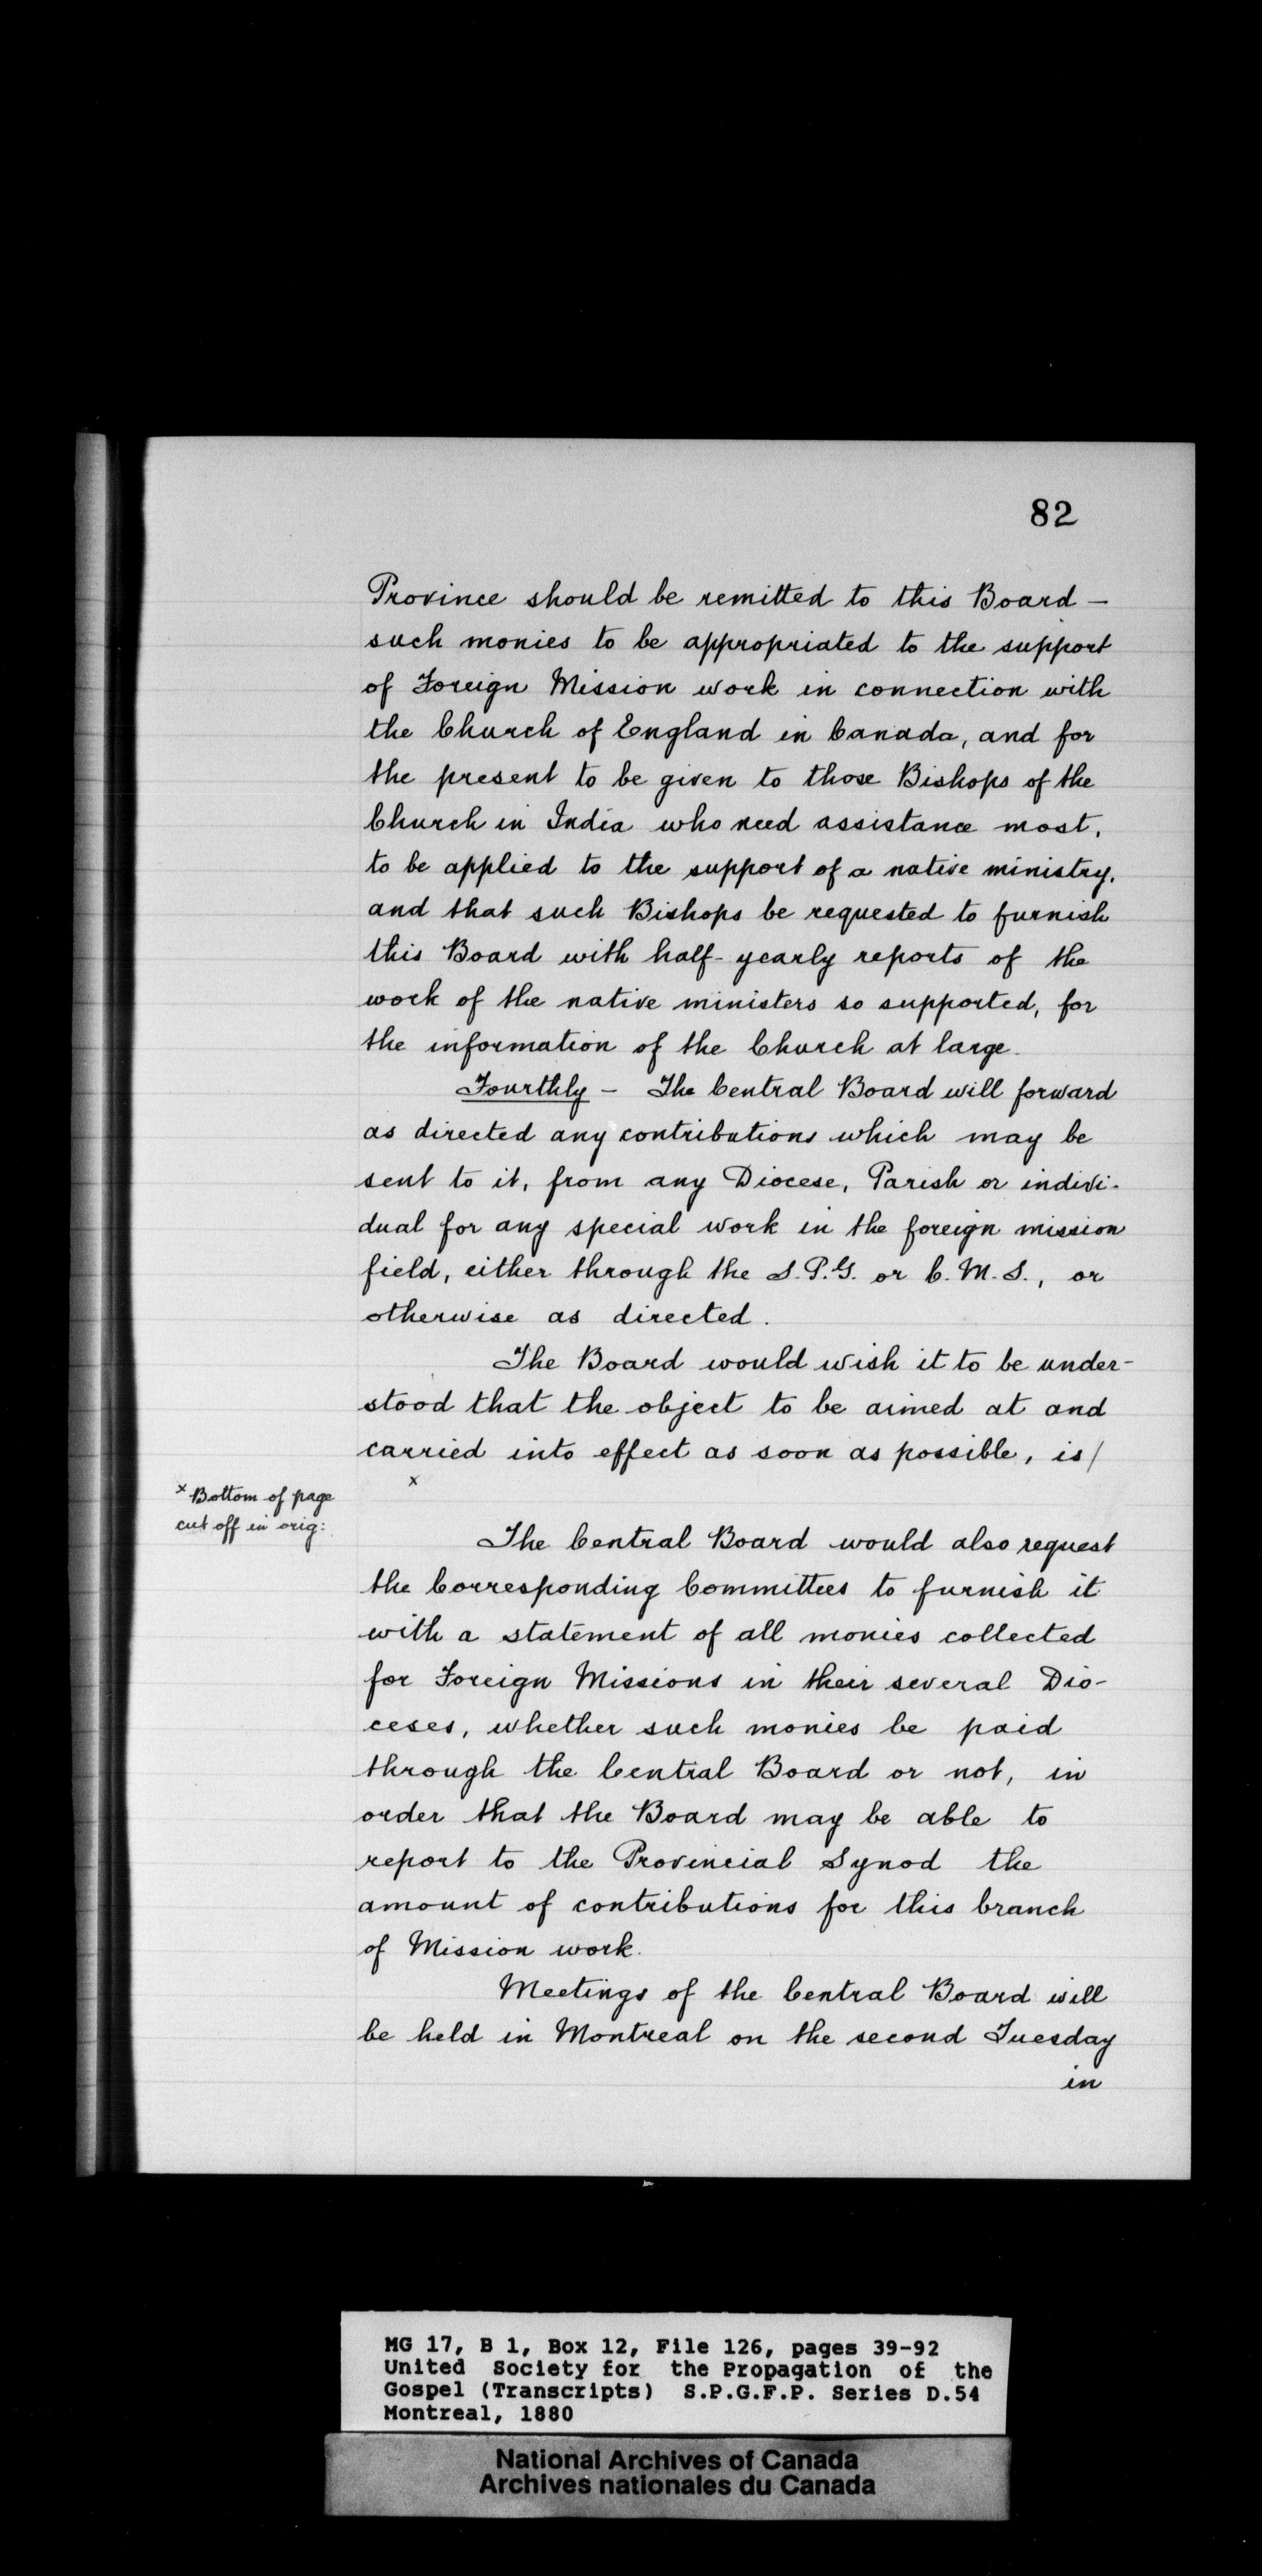 82
Province should be remitted to this Board —
such monies to be appropriated to the support
of Foreign Mission work in connection with
the Church of England in Canada, and for
the present to be given to those Bishops of the
Church in India who need assistance most,
to be applied to the support of a native ministry,
and that such Bishops be requested to furnish
this Board with half-yearly reports of the
work of the native ministers so supported, for
the information of the Church at large.
Fourthly — The Central Board will forward
as directed any contributions which may be
sent to it, from any Diocese, Parish or indivi-
dual for any special work in the foreign mission
field, either through the S.P.G. or C.M.S., or
otherwise as directed.
The Board would wish it to be under-
stood that the object to be aimed at and
carried into effect as soon as possible, is/
x
x Bottom of page
cut off in orig:
The Central Board would also request
the Corresponding Committees to furnish it
with a statement of all monies collected
for Foreign Missions in their several Dio-
ceses, whether such monies be paid
through the Central Board or not, in
order that the Board may be able to
report to the Provincial Synod the
amount of contributions for this branch
of Mission work.
Meetings of the Central Board will
be held in Montreal on the second Tuesday
in
MG 17, B 1, Box 12, File 126, pages 39-92
United Society for the Propagation of the
Gospel (Transcripts) S.P.G.F.P. Series D.54
Montreal, 1880
National Archives of Canada
Archives nationales du Canada